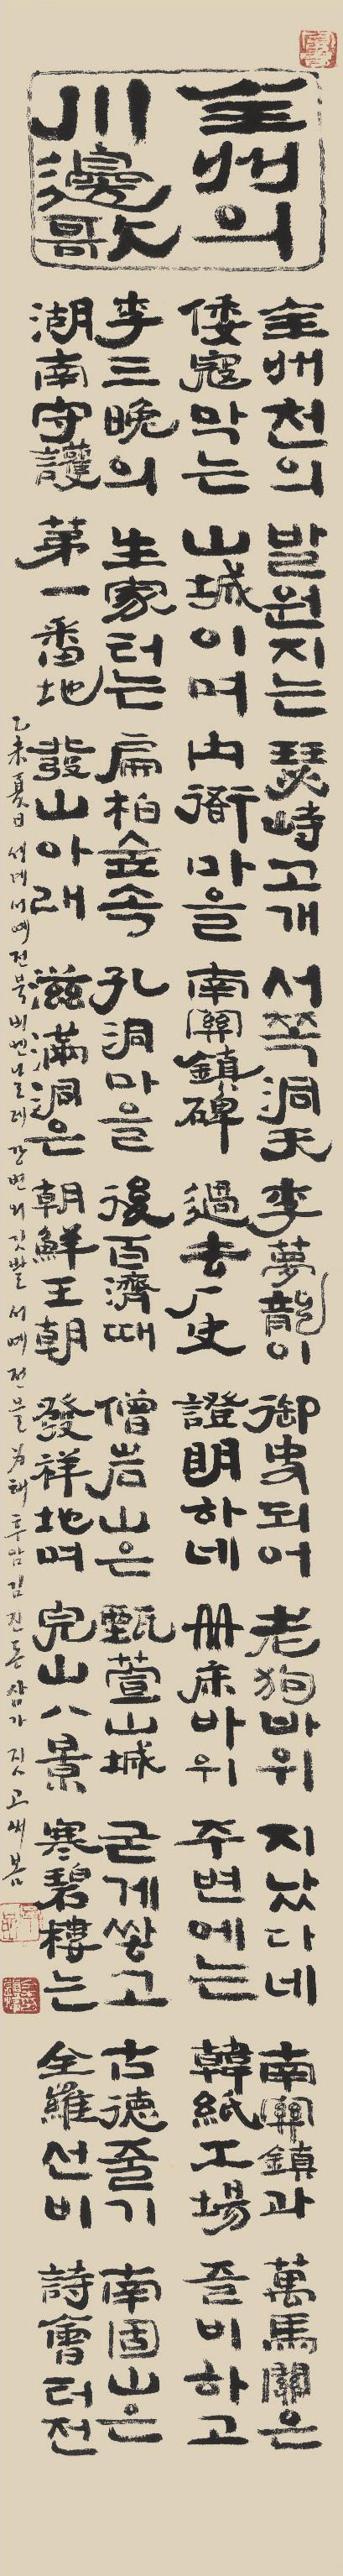 全州의
川邊歌
全州천의 발원지는 瑟峙고개 서쪽洞天 李夢龍이 御史되어 老狗바위 지났다네 南關鎭과 萬馬關은
倭寇막는 山城이며 內衙마을 南關鎭碑 過去歷史 證明하네 冊床바위 주변에는 韓紙工場 즐비하고
李三晩의 生家터는 扁柏숲속 孔洞마을 後百濟때 僧岩山은 甄萱山城 굳게쌓고 古德줄기 南固山은
湖南守護 第一番地 發山아래 滋滿洞은 朝鮮王朝 發祥地며 完山八景 寒碧樓는 全羅선비 詩會터전
乙未夏日 세계서예전북비엔날레 강변의 깃발 서예전을 爲해 후암 김진돈 삼가 짓고 써봄